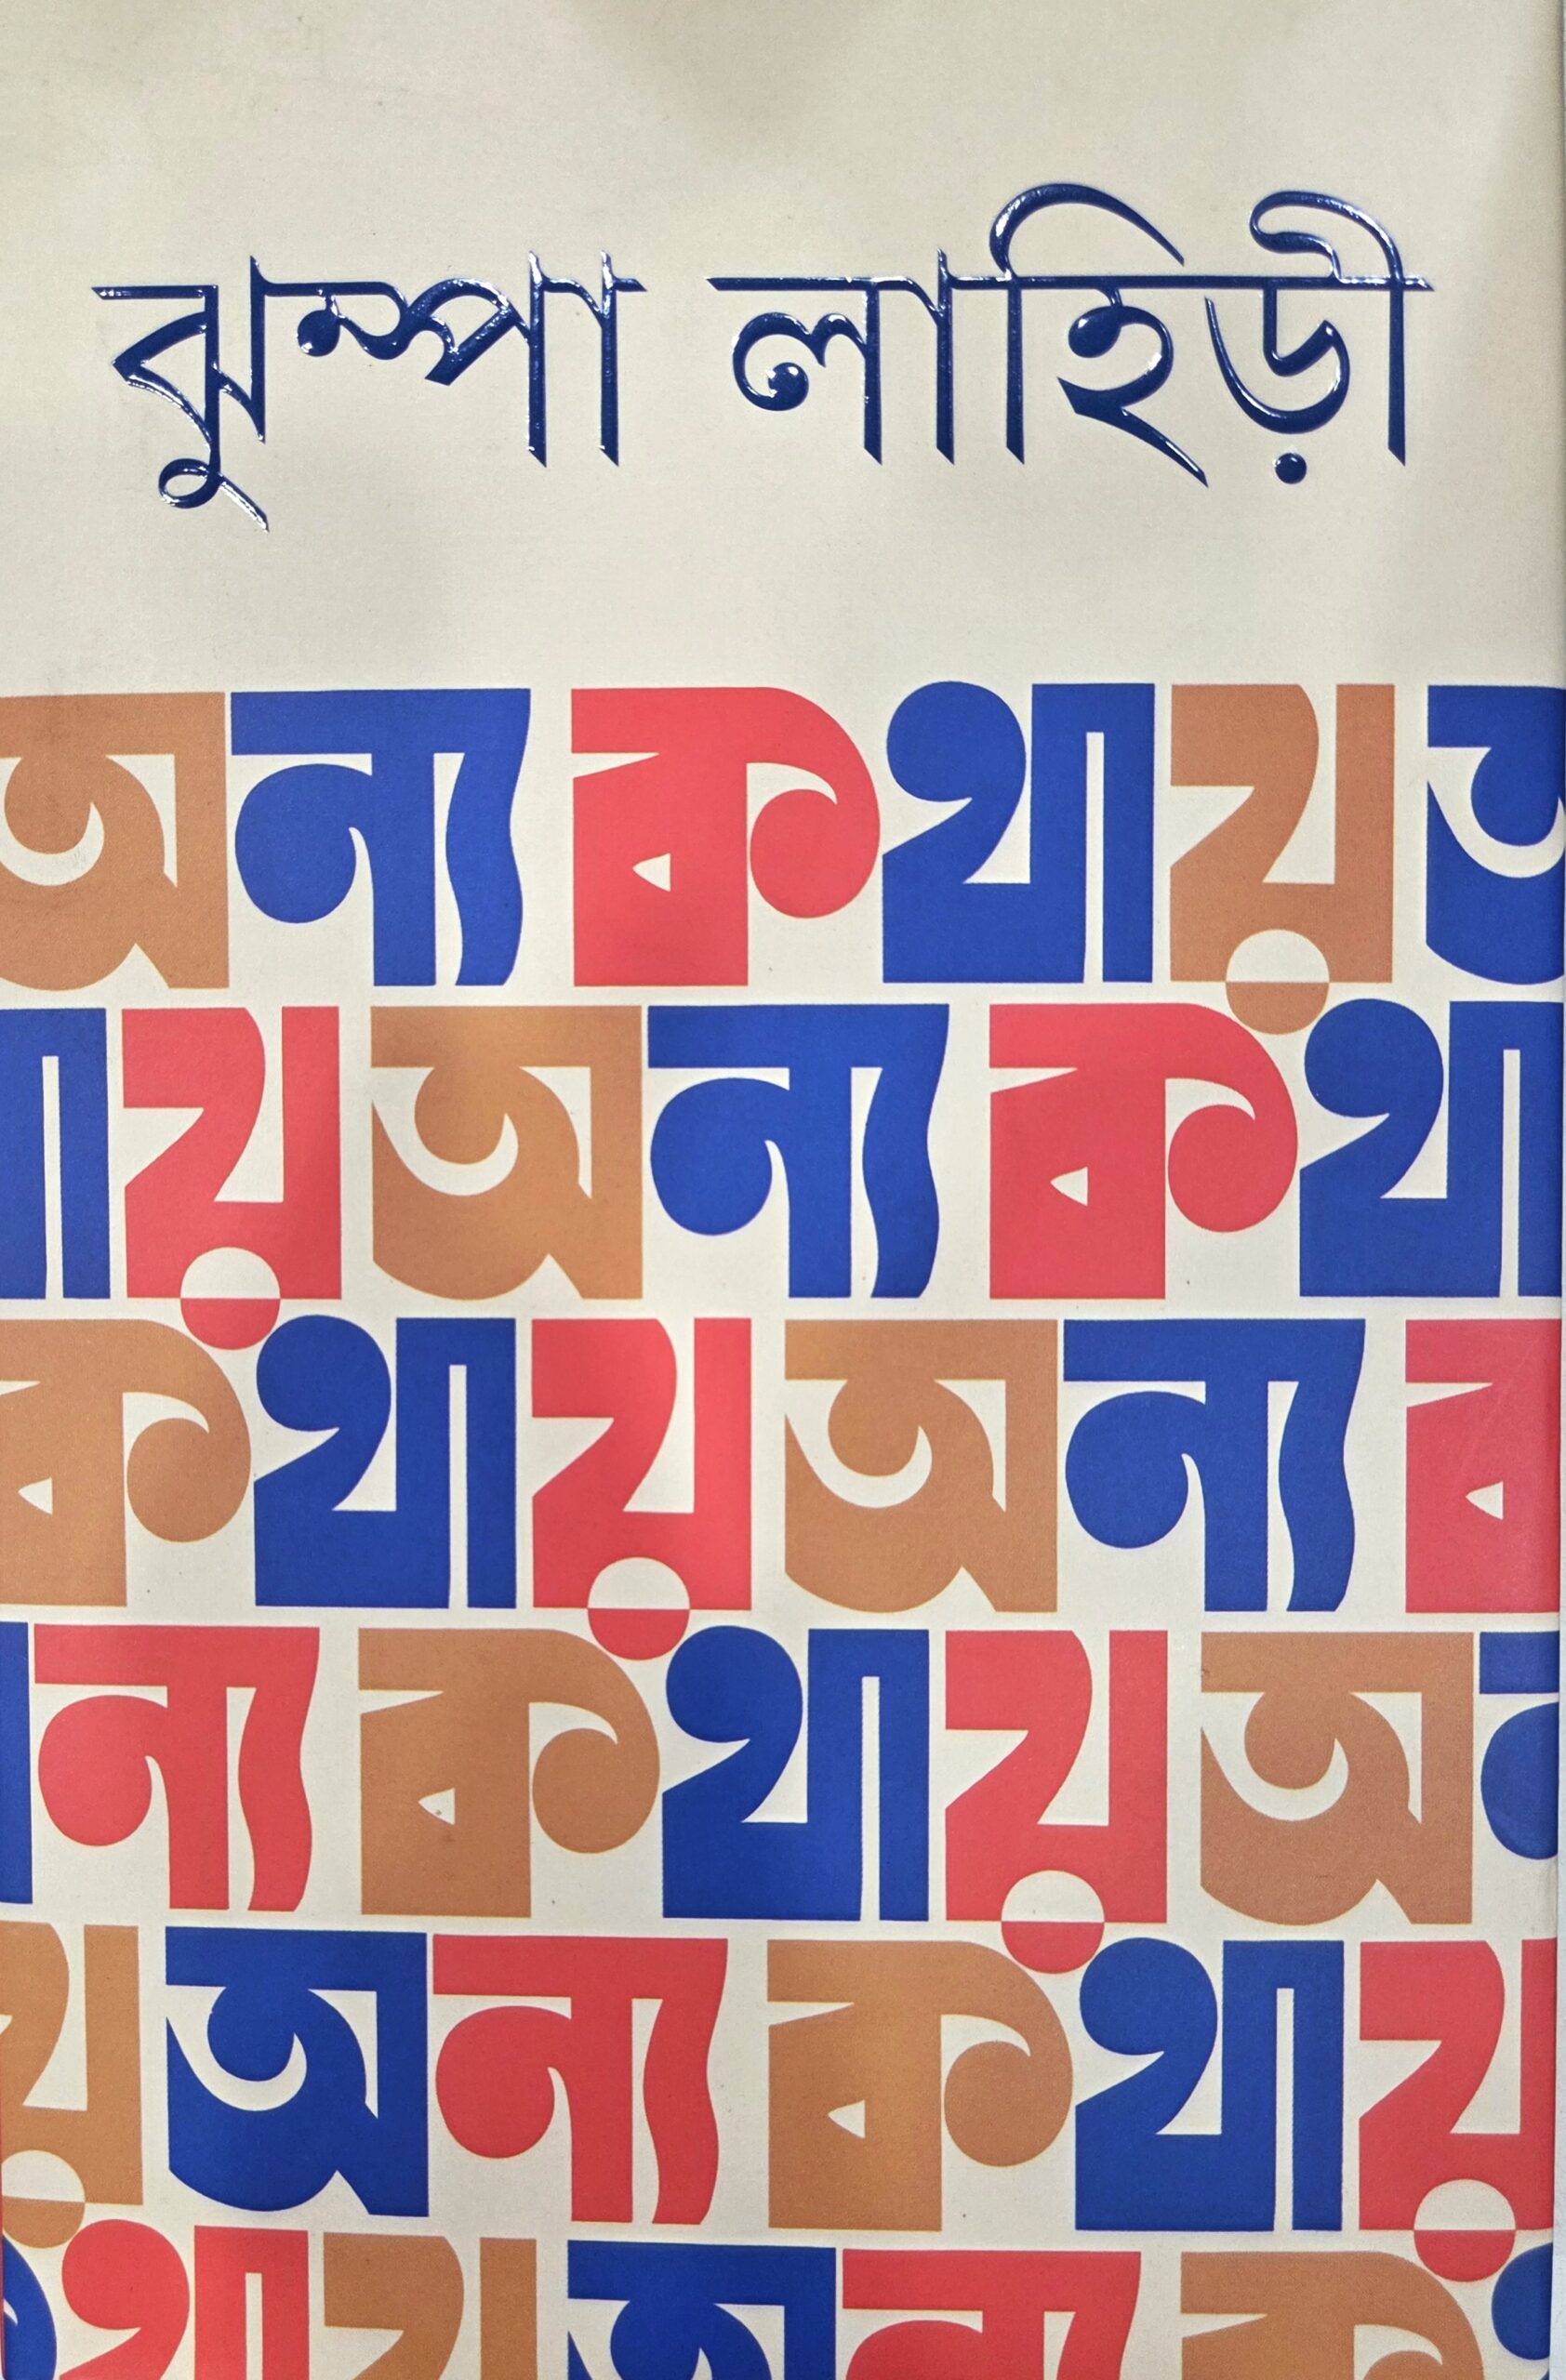 ঝুম্পা লাহিড়ী
অন্য কথায় অ
থায় অন্য কথা
কথায় অন্য ক
ন্য কথায় অন
য় অন্য কথায়
থায় অন্য ক